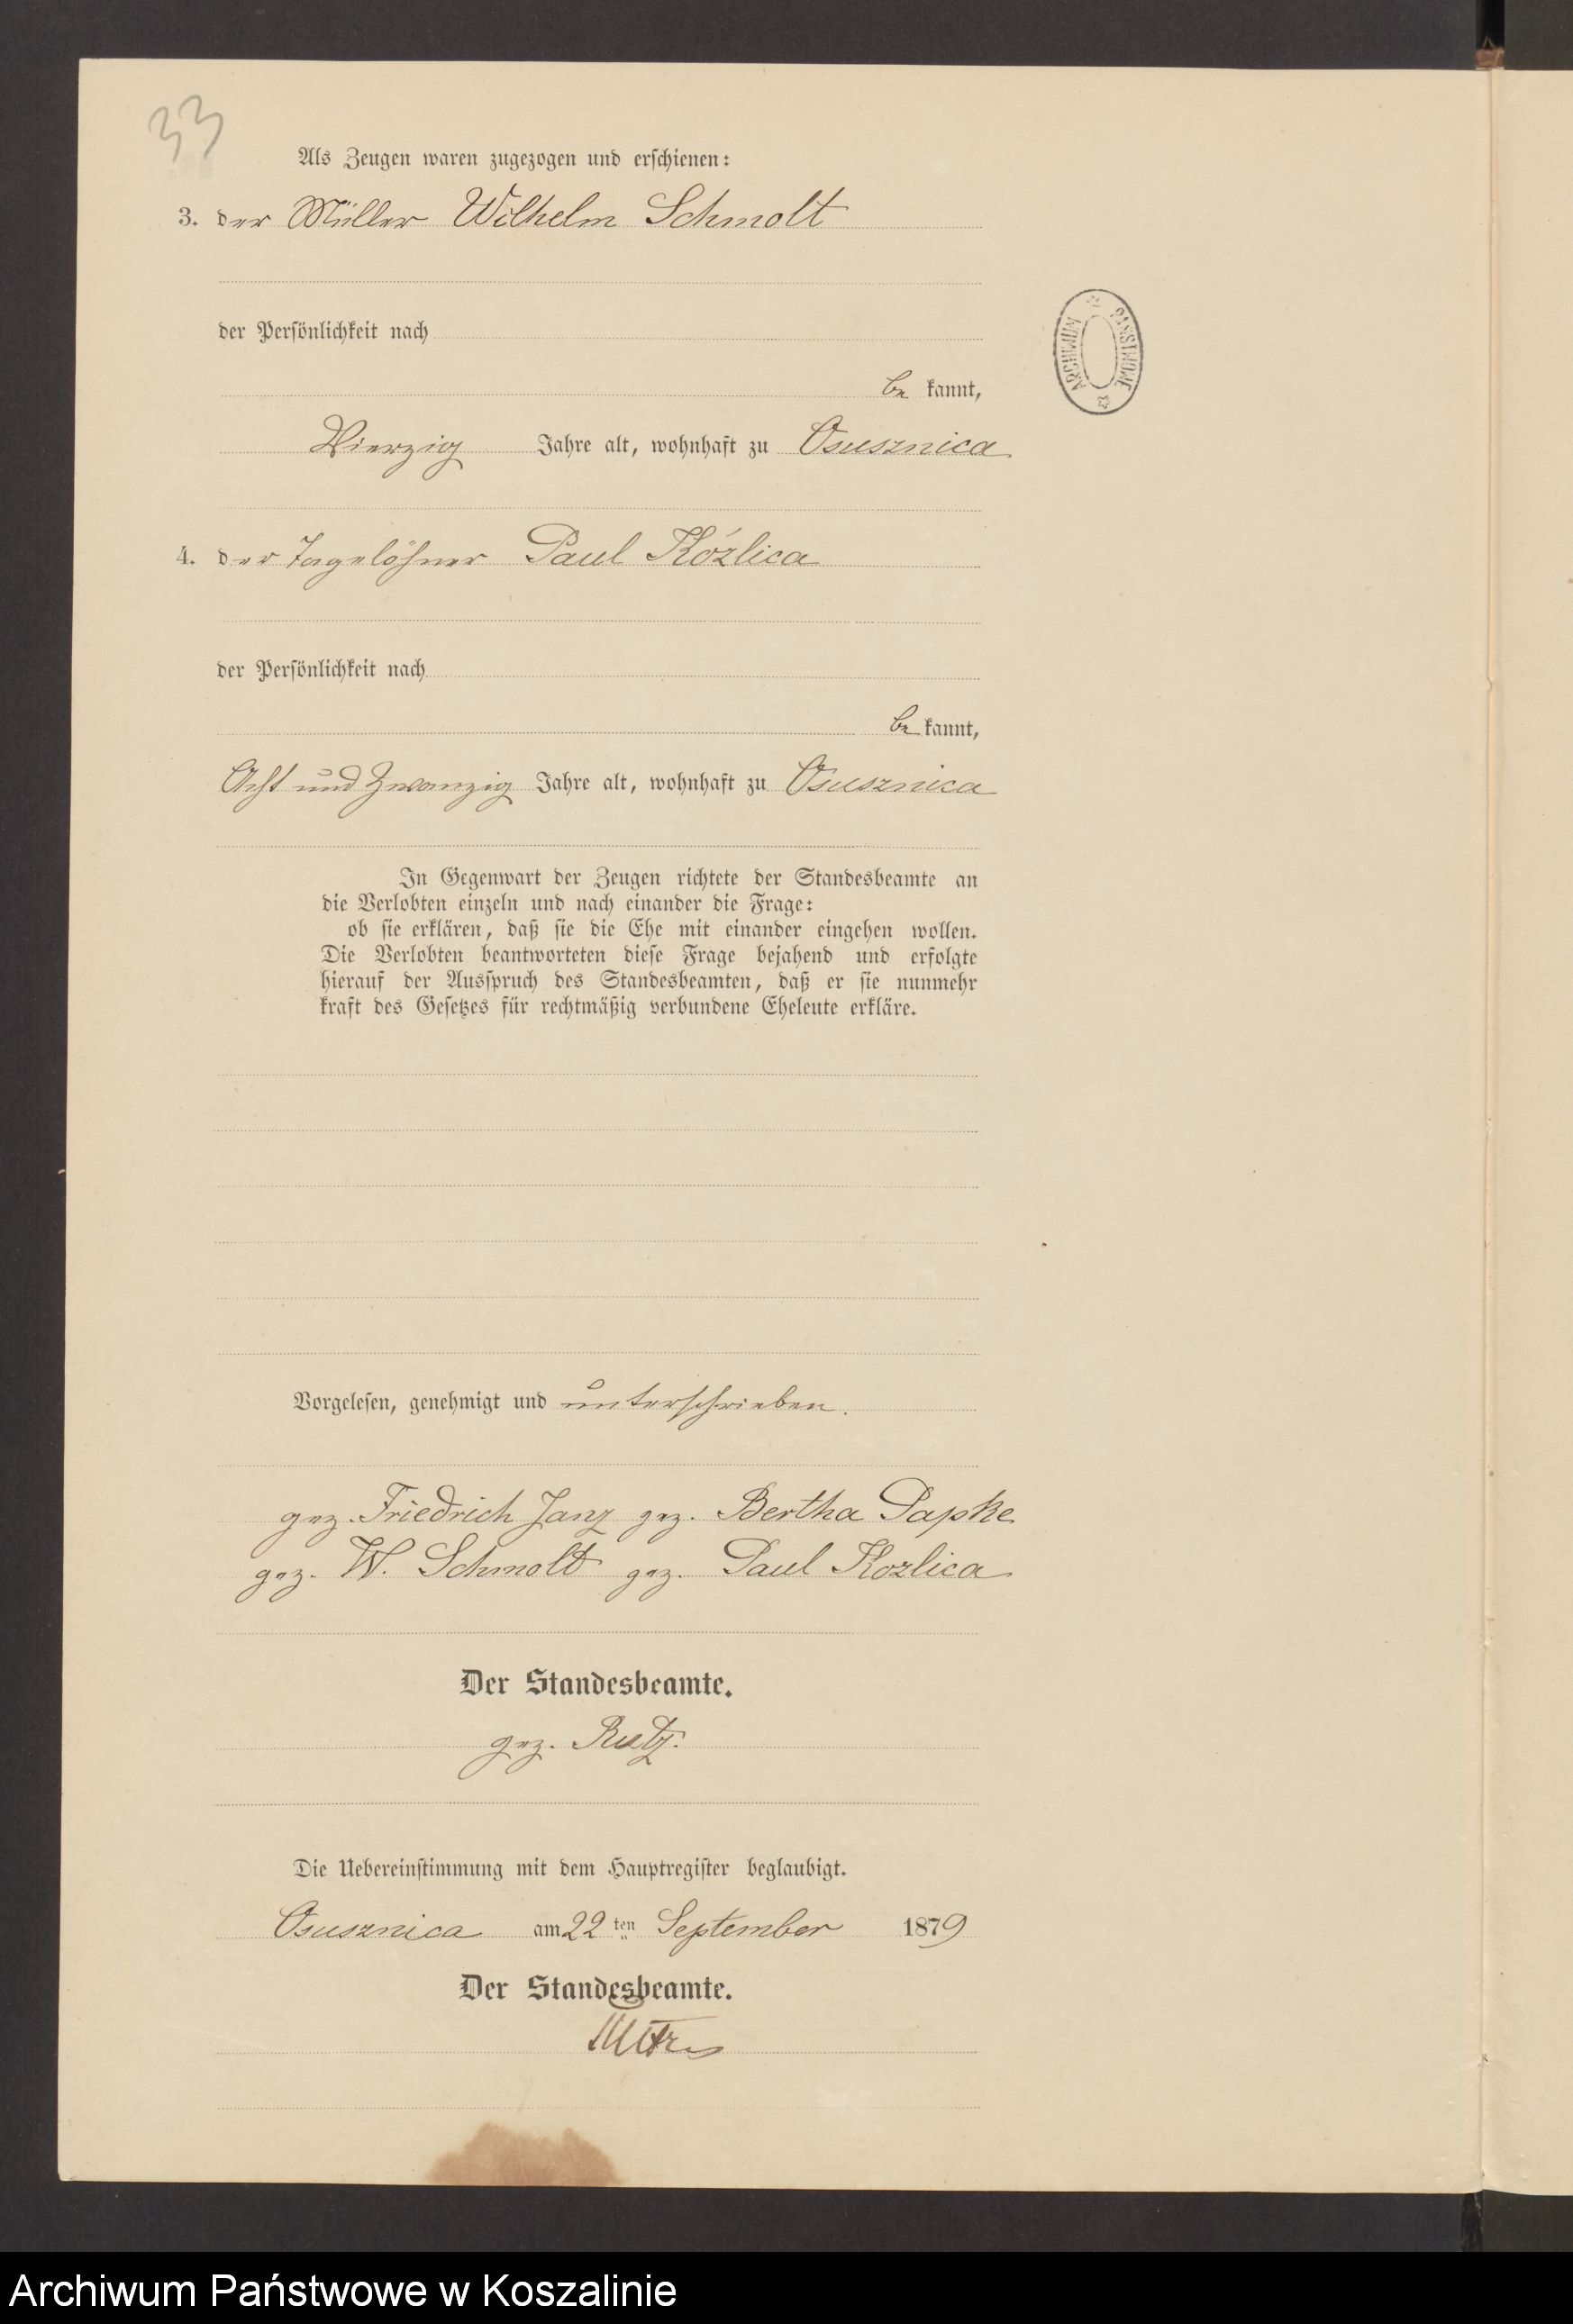 33
Als Zeugen waren zugezogen und erschienen:
3. der Müller Wilhelm Schmolt
der Persönlichkeit nach
be kannt,
Vierzig Jahre alt, wohnhaft zu Osusznica
4. der Tagelöhner Paul Kózlica
der Persönlichkeit nach
be kannt,
Acht und Zwanzig Jahre alt, wohnhaft zu Osusznica
In Gegenwart der Zeugen richtete der Standesbeamte an
die Verlobten einzeln und nach einander die Frage:
ob sie erklären, daß sie die Ehe mit einander eingehen wollen.
Die Verlobten beantworteten diese Frage bejahend und erfolgte
hierauf der Ausspruch des Standesbeamten, daß er sie nunmehr
kraft des Gesetzes für rechtmäßig verbundene Eheleute erkläre.
Vorgelesen, genehmigt und unterschrieben.
gez. Friedrich Janz gez. Bertha Papke
gez. W. Schmolt gez. Paul Kozlica
Der Standesbeamte.
gez. Rutz.
Die Uebereinstimmung mit dem Hauptregister beglaubigt.
Osusznica am 22 ten September 1879
Der Standesbeamte.
ARCHIWUM PAŃSTWOWE
Archiwum Państwowe w Koszalinie